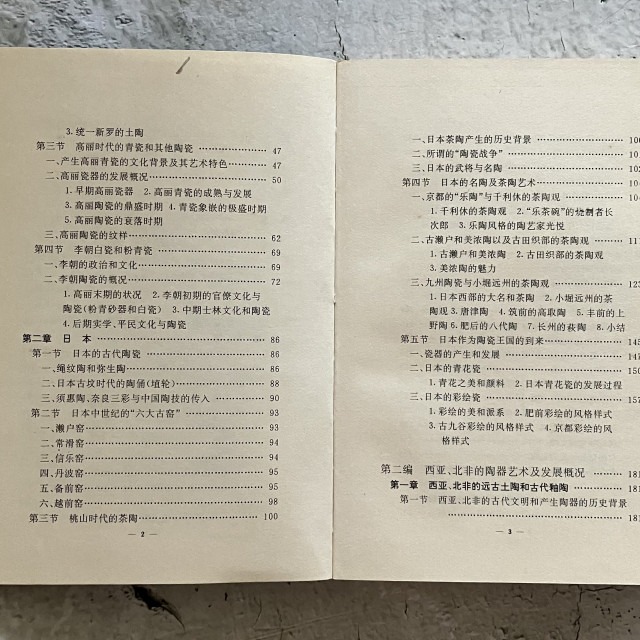 3.统一新罗的土陶
第三节 高丽时代的青瓷和其他陶瓷 ……………… 47
一、产生高丽青瓷的文化背景及其艺术特色 ……… 47
二、高丽瓷器的发展概况 ……………………… 50
1.早期高丽瓷器 2.高丽青瓷的成熟与发展
3.高丽陶瓷的鼎盛时期 4.青瓷象嵌的极盛时期
5.高丽陶瓷的衰落时期
三、高丽陶瓷的纹样 …………………………… 62
第四节 李朝白瓷和粉青瓷 ……………………… 69
一、李朝的政治和文化 ………………………… 69
二、李朝陶瓷的概况 …………………………… 72
1.高丽末期的状况 2.李朝初期的官僚文化与
陶瓷(粉青砂器和白瓷) 3.中期士林文化和陶瓷
4.后期实学、平民文化与陶瓷
第二章 日 本 …………………………………… 86
第一节 日本的古代陶瓷 ………………………… 86
一、绳纹陶和弥生陶 …………………………… 86
二、日本古坟时代的陶俑(埴轮) ……………… 88
三、须惠陶、奈良三彩与中国陶技的传入 ……… 90
第二节 日本中世纪的“六大古窑” ……………… 93
一、濑户窑 ……………………………………… 93
二、常滑窑 ……………………………………… 94
三、信乐窑 ……………………………………… 94
四、丹波窑 ……………………………………… 95
五、备前窑 ……………………………………… 95
六、越前窑 ……………………………………… 98
第三节 桃山时代的茶陶 ………………………… 100
— 2 —
一、日本茶陶产生的历史背景 …………………
二、所谓的“陶瓷战争” …………………………
三、日本的武将与名陶 …………………………
第四节 日本的名陶及茶陶艺术 …………………
一、京都的“乐陶”与千利休的茶陶观 …………
1.千利休的茶陶观 2.“乐茶碗”的烧制者长
次郎 3.乐陶风格的陶艺家光悦
二、古濑户和美浓陶以及古田织部的茶陶观 ……
1.古濑户和美浓陶 2.古田织部的茶陶观
3.美浓陶的魅力
三、九州陶瓷与小堀远州的茶陶观 …………… 123
1.日本西部的大名和茶陶 2.小堀远州的茶
陶观 3.唐津陶 4.筑前的高取陶 5.丰前的上
野陶 6.肥后的八代陶 7.长州的萩陶 8.小结
第五节 日本作为陶瓷王国的到来 ……………… 145
一、瓷器的产生和发展 ………………………… 147
二、日本的青花瓷 ……………………………… 150
1.青花之美和颜料 2.日本青花瓷的发展过程
三、日本的彩绘瓷 ……………………………… 157
1.彩绘的美和派系 2.肥前彩绘的风格样式
3.古九谷彩绘的风格样式 4.京都彩绘的风
格样式
第二编 西亚、北非的陶器艺术及发展概况 …… 181
第一章 西亚、北非的远古土陶和古代釉陶 …… 181
第一节 西亚、北非的古代文明和产生陶器的历史背景
……………………………………………… 181
— 3 —